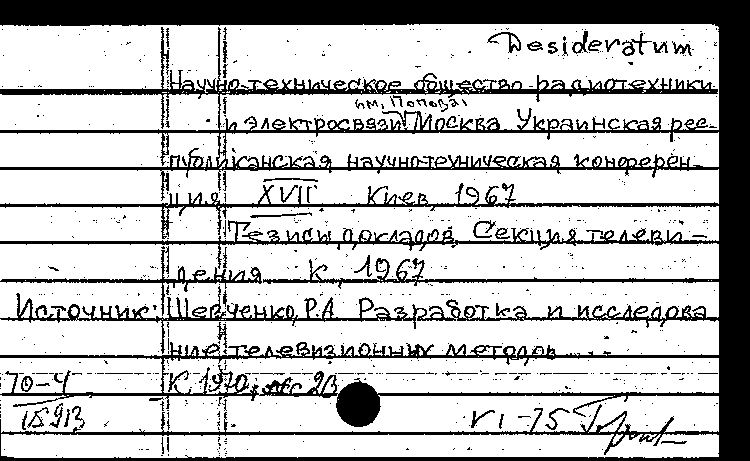 Desideratum
Научно-техническое общество радиотехники
им. Попова.
и электросвязи Москва. Украинская рес-
публиканская научно-техническая конферен-
ция XVII. Киев, 1967
Тезисы докладов. Секция телеви-
дения К., 1967
Источник: Шевченко, Р.А. Разработка и исследова
ние телевизионных методов...
70-4 К, 1970, 23
15913
VI-75